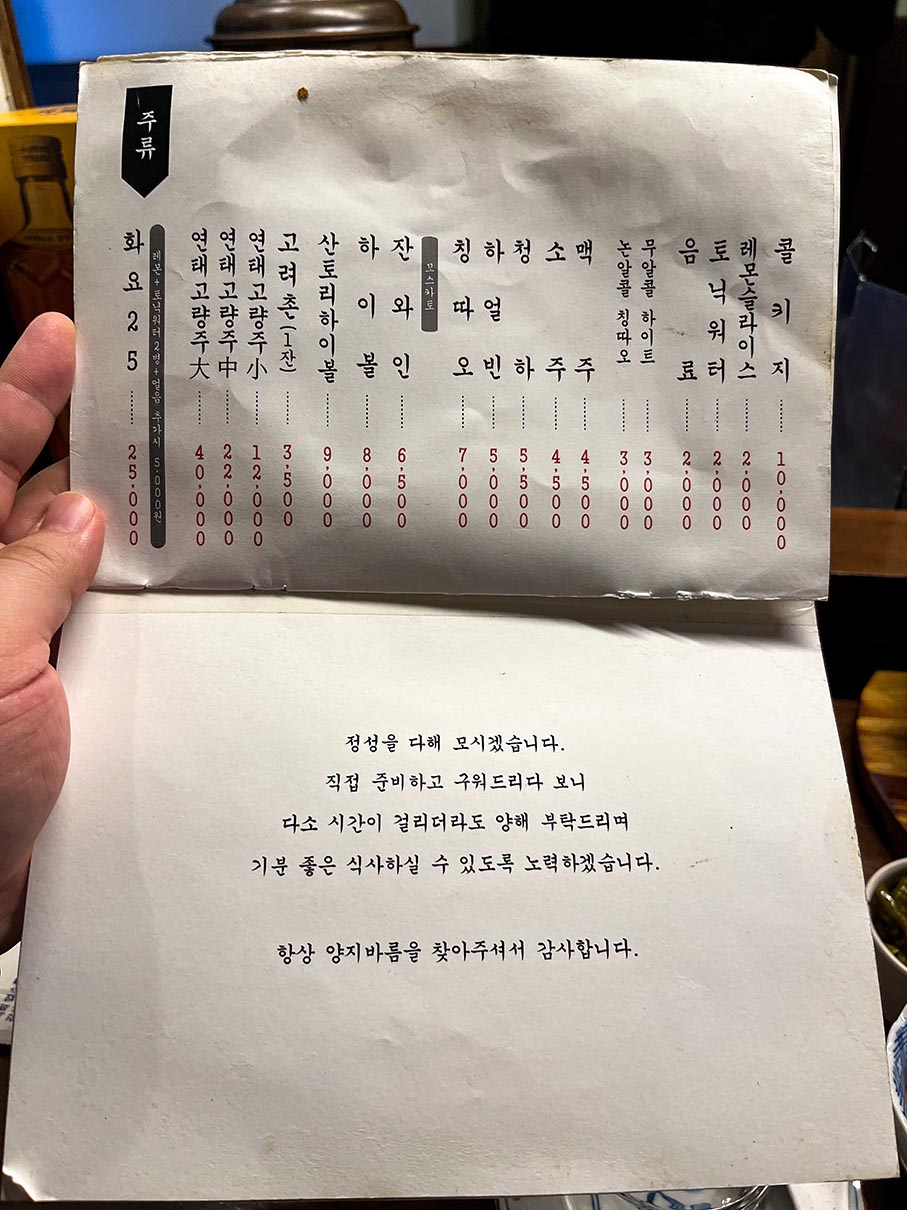 주류
화요25 ······ 25,000
레몬+토닉워터2병+얼음 추가시 5,000원
연태고량주大 ······ 40,000
연태고량주中 ······ 22,000
연태고량주小 ······ 12,000
고려촌(1잔) ······ 3,500
산토리하이볼 ······ 9,000
하이볼 ······ 8,000
잔와인 ······ 6,500
모스카토
칭따오 ······ 7,000
하얼빈 ······ 5,000
청하 ······ 5,500
소주 ······ 4,500
맥주 ······ 4,500
논알콜 칭따오 ······ 3,000
무알콜 하이트 ······ 3,000
음료 ······ 2,000
토닉워터 ······ 2,000
레몬슬라이스 ······ 2,000
콜키지 ······ 10,000
정성을 다해 모시겠습니다.
직접 준비하고 구워드리다 보니
다소 시간이 걸리더라도 양해 부탁드리며
기분 좋은 식사하실 수 있도록 노력하겠습니다.
항상 양지바름을 찾아주셔서 감사합니다.